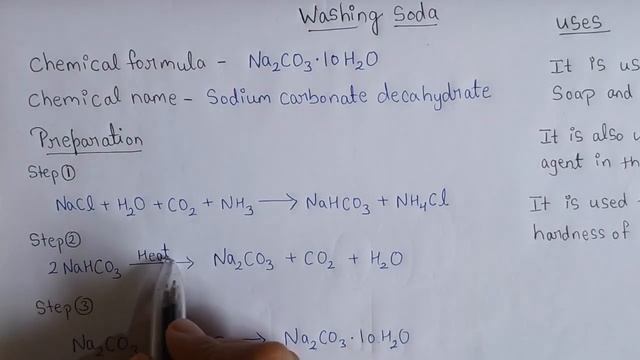 Washing Soda
Chemical formula - Na₂CO₃·10H₂O
Chemical name - Sodium carbonate decahydrate
Preparation
Step ①
NaCl + H₂O + CO₂ + NH₃ → NaHCO₃ + NH₄Cl
Step ②
2 NaHCO₃ Heat → Na₂CO₃ + CO₂ + H₂O
Step ③
Na₂CO₃ → Na₂CO₃·10H₂O
uses
It is
Soap and
It is also
agent in
It is used
hardness of